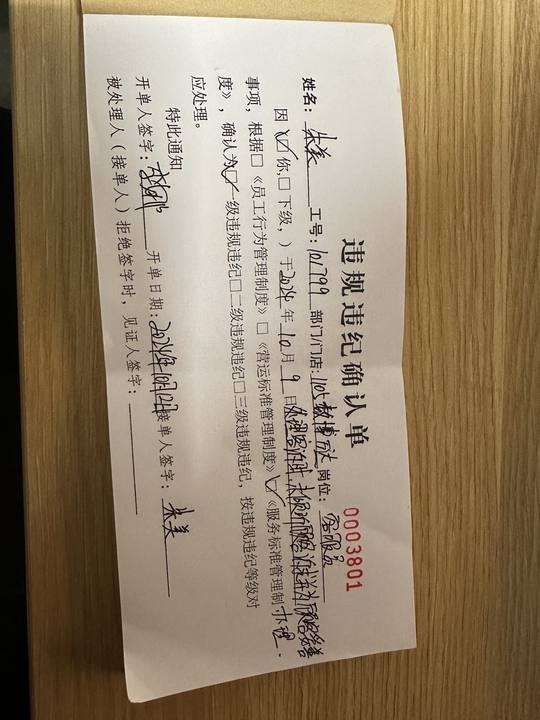 违规违纪确认单
0003801
姓名：朱美 工号：101799 部门/门店： 岗位：客服员
因（☑你，□下级，）于2024年10月9日处理客诉时，
事项，根据□《员工行为管理制度》□《营运标准管理制度》☑《服务标准管理制
度》，确认为☑一级违规违纪□二级违规违纪□三级违规违纪，按违规违纪等级对
应处理。
特此通知
开单人签字： 开单日期： 接单人签字：朱美
被处理人（接单人）拒绝签字时，见证人签字：